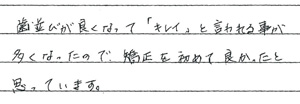 歯並びが良くなって「キレイ」と言われる事が
多くなったので、矯正を初めて良かったと
思っています。